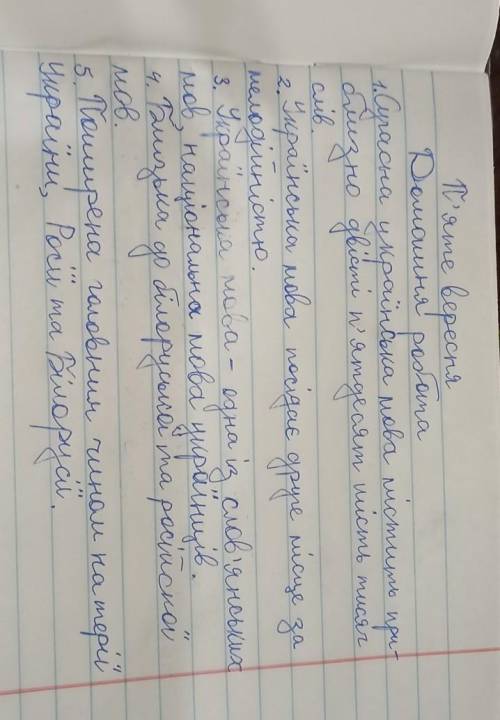 П'яте вересня
Домашня робота
1. Сучасна українська мова містить при-
близно двісті п'ятдесят шість тисяч
слів.
2. Українська мова посідає друге місце за
мелодійністю.
3. Українська мова - одна із слов'янських
мов національна мова українців.
4. Близька до білоруської та російської
мов.
5. Поширена головним чином на терії
України, Росії та Білорусії.